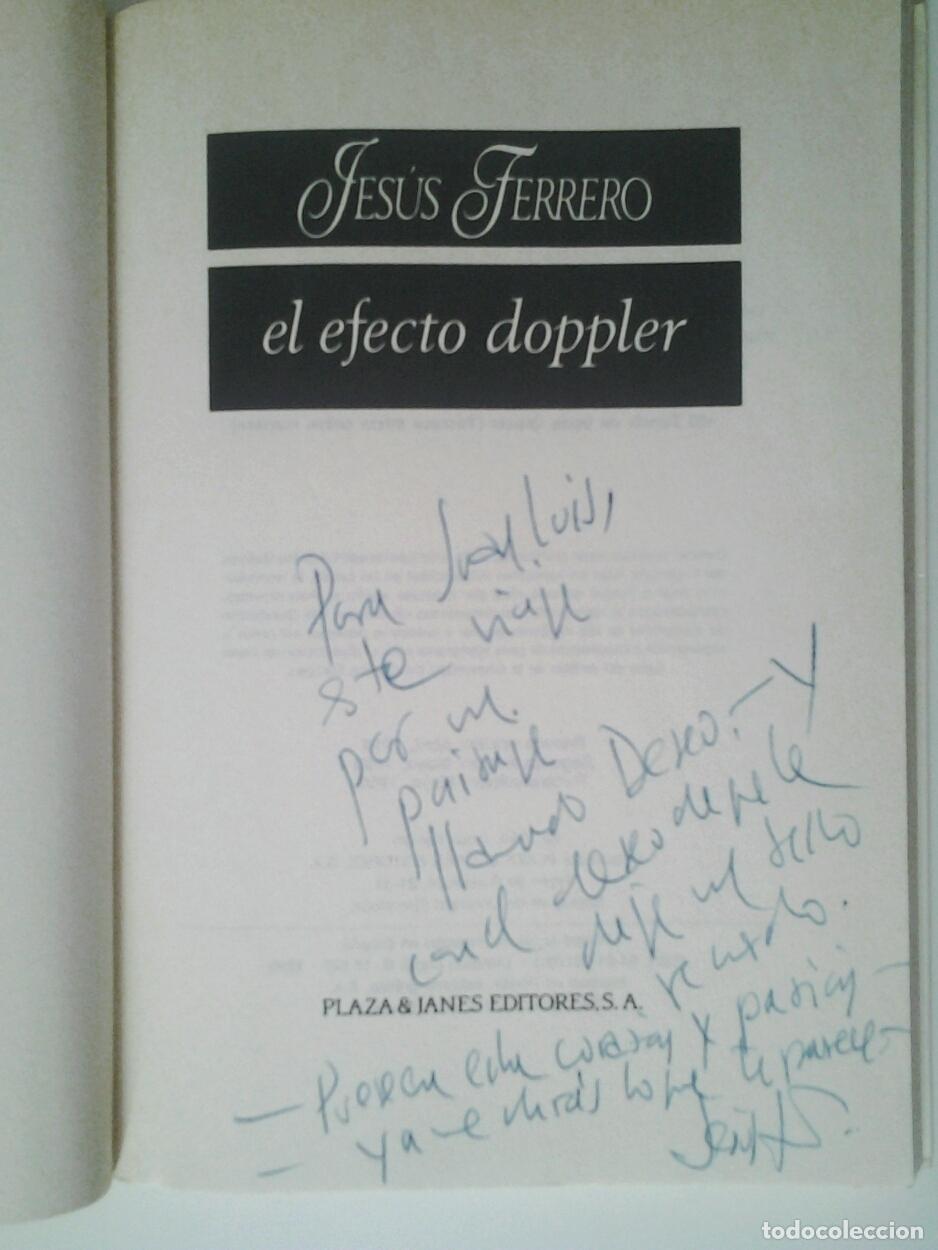 JESÚS FERRERO
el efecto doppler
Para Juan Luis,
este viaje
por un
paisaje
llamado Deseo. – Y
con el deseo de que le
deje un bello
recuerdo.
PLAZA & JANES EDITORES, S. A.
— corazón y pasión –
— Ya me dirás lo que te parece –
Jesús
todocoleccion